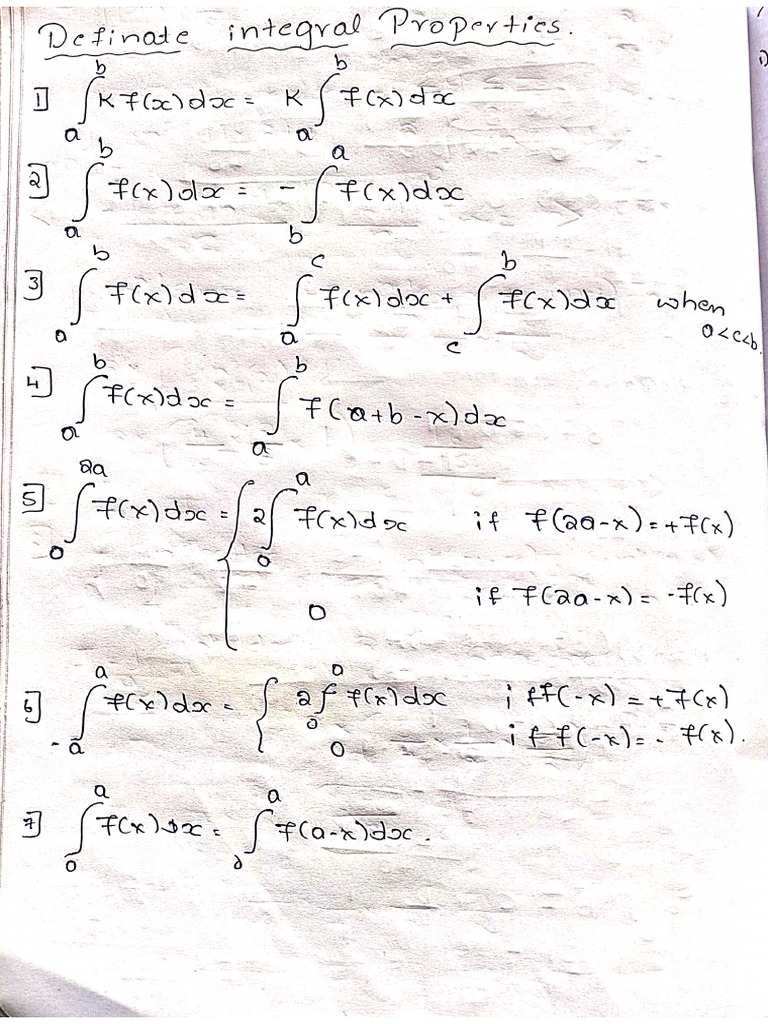 Definate integral Properties.
1] ∫_a^b K f(x) dx = K ∫_a^b f(x) dx
2] ∫_a^b f(x) dx = - ∫_b^a f(x) dx
3] ∫_a^b f(x) dx = ∫_a^c f(x) dx + ∫_c^b f(x) dx when a<c<b.
4] ∫_a^b f(x) dx = ∫_a^b f(a+b-x) dx
5] ∫_0^{2a} f(x) dx = { 2 ∫_0^a f(x) dx if f(2a-x) = +f(x)
0 if f(2a-x) = -f(x)
6] ∫_{-a}^a f(x) dx = { 2 ∫_0^0 f(x) dx if f(-x) = +f(x)
0 if f(-x) = - f(x).
7] ∫_0^a f(x) dx = ∫_0^a f(a-x) dx.